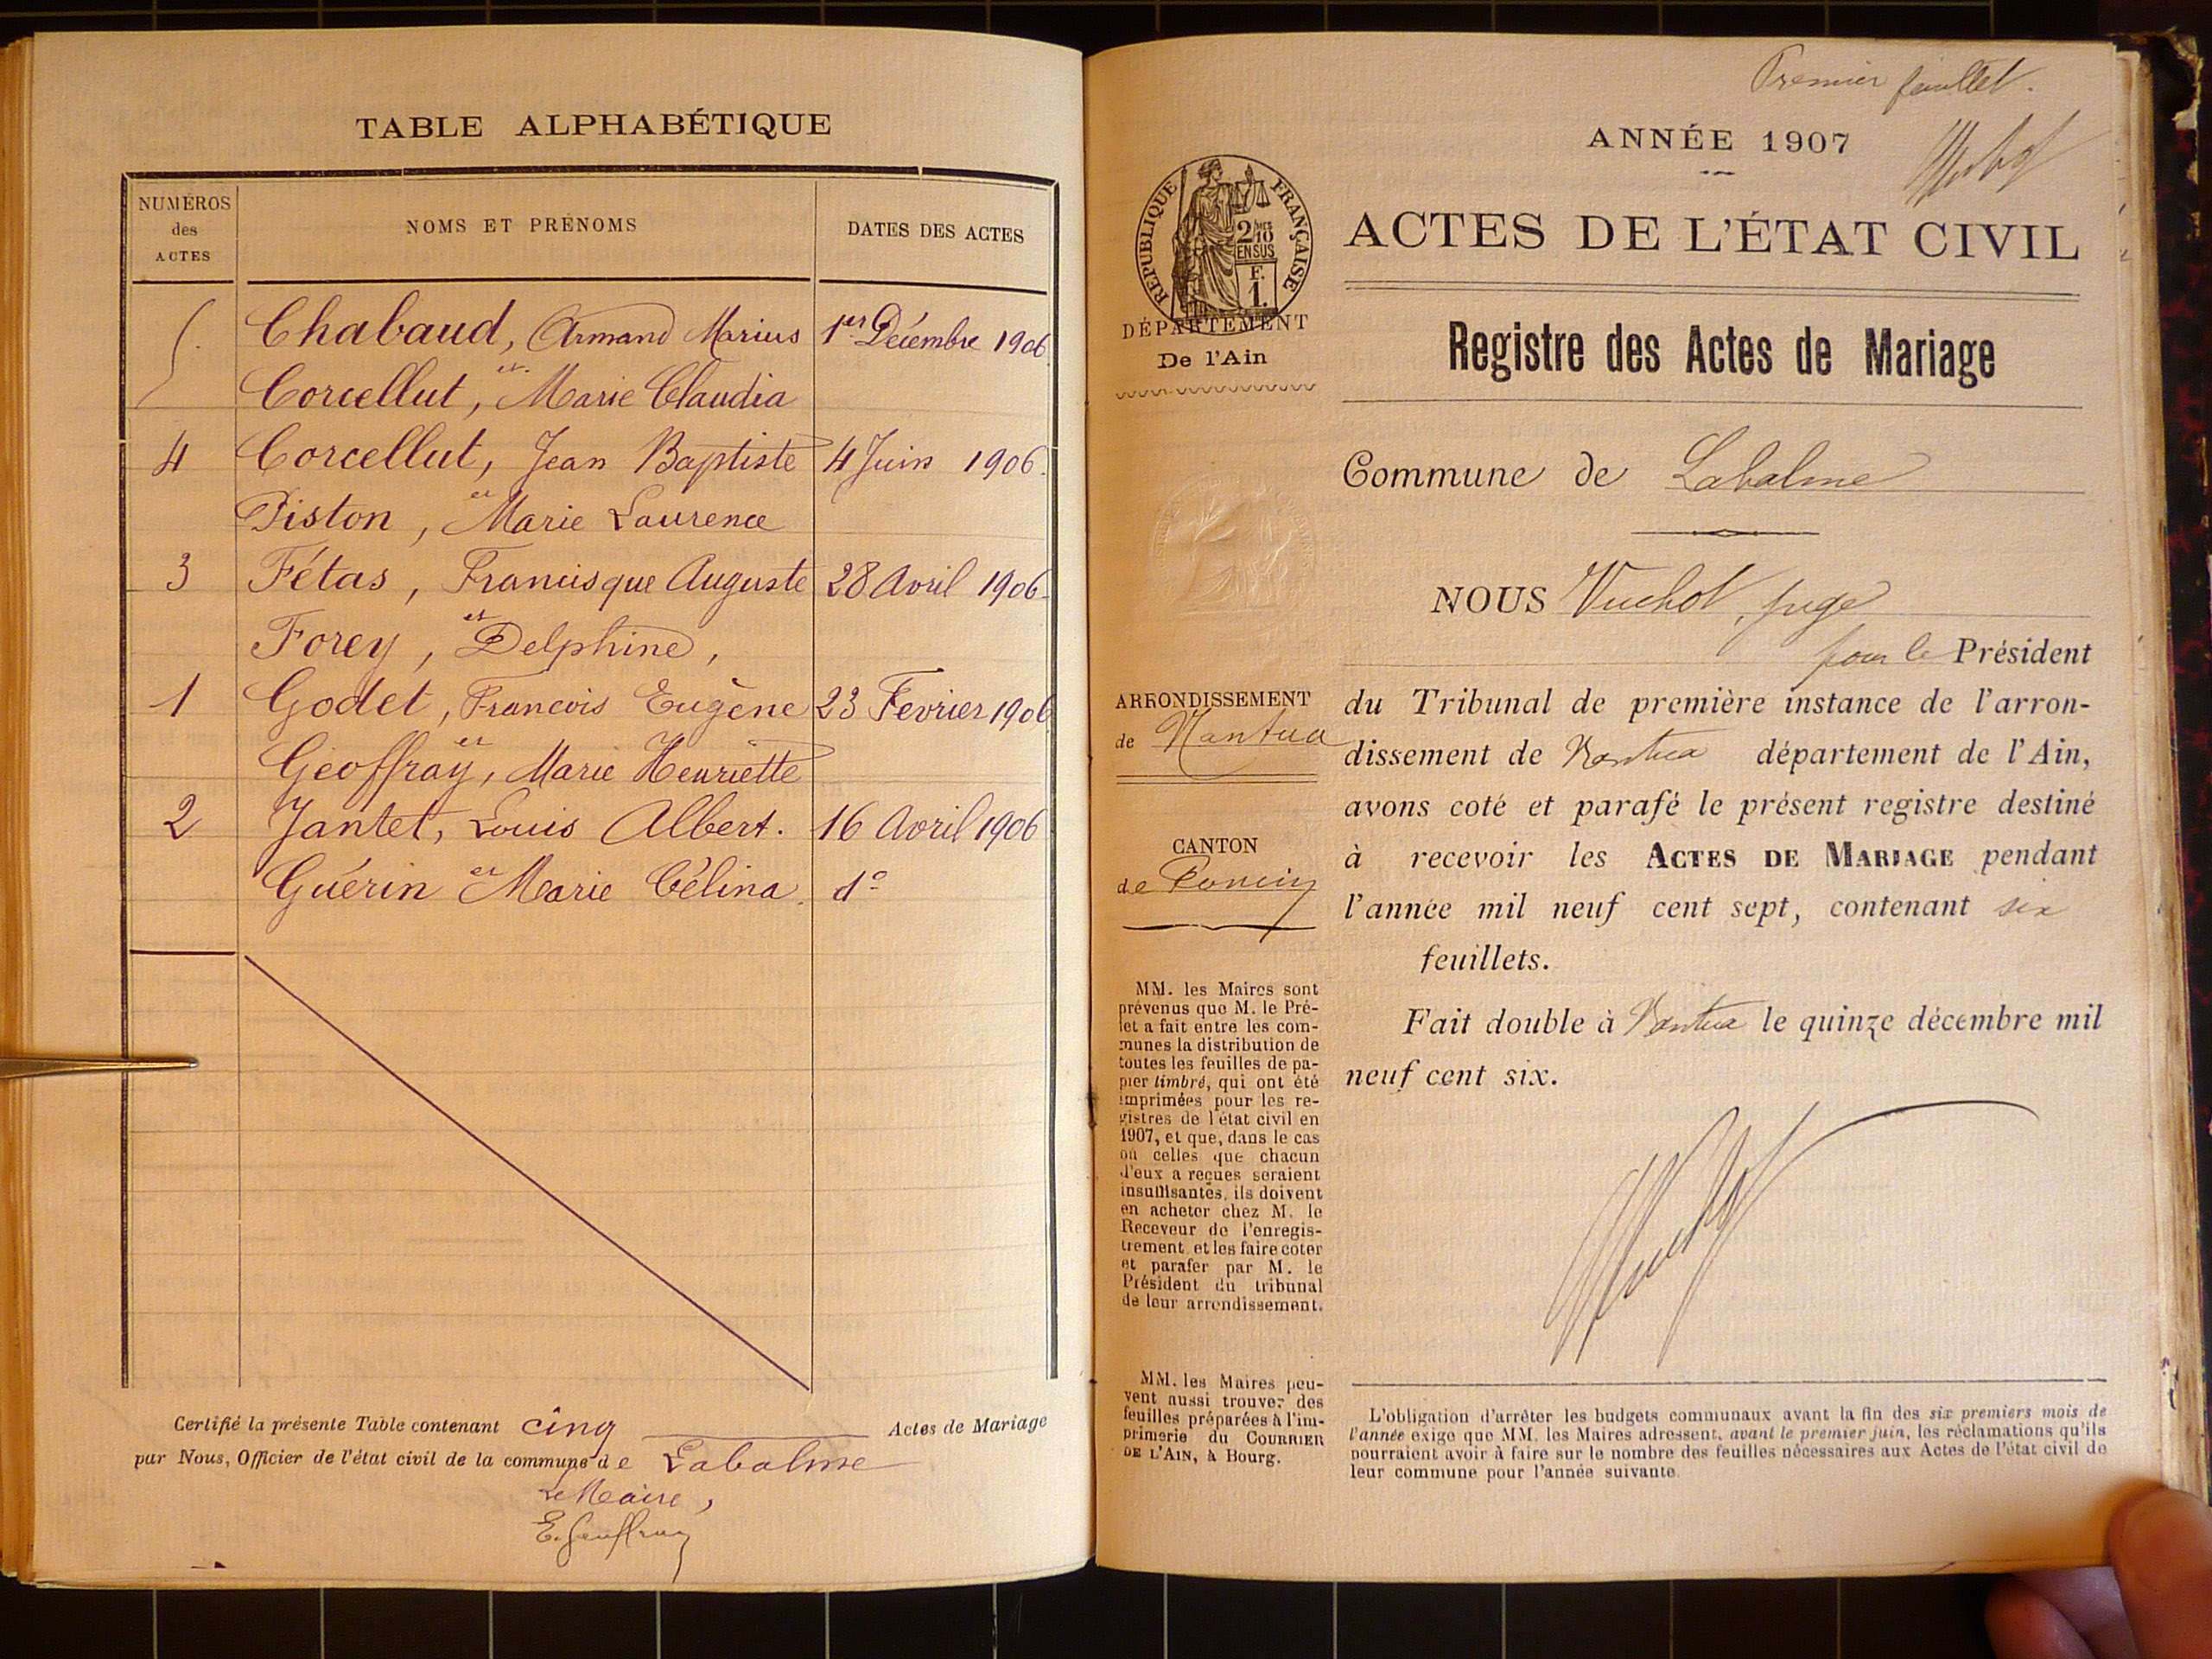 TABLE ALPHABÉTIQUE
NUMÉROS des ACTES
NOMS ET PRÉNOMS
DATES DES ACTES
5. Chabaud, Armand Marius 1er Décembre 1906
et
Corcellut, Marie Claudia
4 Corcellut, Jean Baptiste 4 Juin 1906.
et
Piston, Marie Laurence
3 Fétas, Francisque Auguste 28 Avril 1906.
et
Forey, Delphine,
1 Godet, Francois Eugène 23 Fevrier 1906
et
Geoffray, Marie Henriette
2 Jantet, Louis Albert. 16 Avril 1906
Guérin et Marie Célina. do
Certifié la présente Table contenant cinq Actes de Mariage
par Nous, Officier de l'état civil de la commune de Labalme
Le Maire,
E. Geoffray
Premier feuillet.
ANNÉE 1907
RÉPUBLIQUE FRANÇAISE
2/10
EN SUS
F.
1.
ACTES DE L'ÉTAT CIVIL
DÉPARTEMENT
De l'Ain
Registre des Actes de Mariage
Commune de Labalme
NOUS Vuchot, juge
pour le Président
ARRONDISSEMENT
de Nantua
du Tribunal de première instance de l'arron-
dissement de Nantua département de l'Ain,
avons coté et parafé le présent registre destiné
à recevoir les ACTES DE MARIAGE pendant
l'année mil neuf cent sept, contenant six
feuillets.
Fait double à Nantua le quinze décembre mil
neuf cent six.
CANTON
de Poncin
MM. les Maires sont
prévenus que M. le Pré-
fet a fait entre les com-
munes la distribution de
toutes les feuilles de pa-
pier timbré, qui ont été
imprimées pour les re-
gistres de l'état civil en
1907, et que, dans le cas
où celles que chacun
d'eux a reçues seraient
insuffisantes, ils doivent
en acheter chez M. le
Receveur de l'enregis-
trement et les faire coter
et parafer par M. le
Président du tribunal
de leur arrondissement.
MM. les Maires peu-
vent aussi trouver des
feuilles préparées à l'im-
primerie du COURRIER
DE L'AIN, à Bourg.
L'obligation d'arrêter les budgets communaux avant la fin des six premiers mois de
l'année exige que MM. les Maires adressent, avant le premier juin, les réclamations qu'ils
pourraient avoir à faire sur le nombre des feuilles nécessaires aux Actes de l'état civil de
leur commune pour l'année suivante.